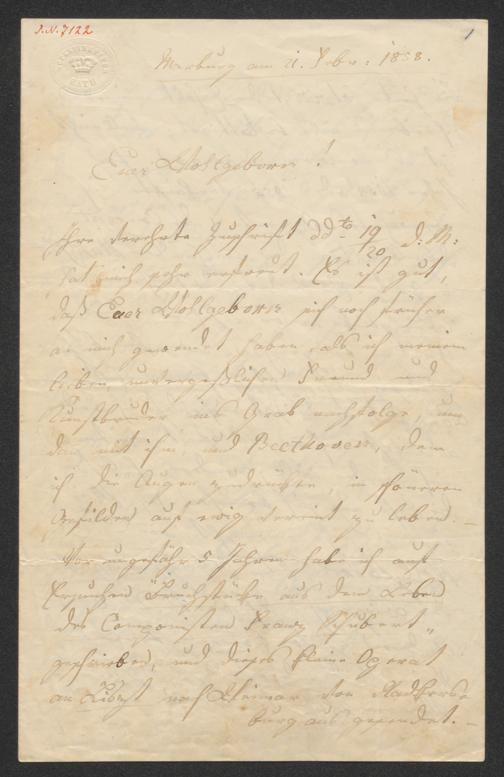 J.N. 7122
1
BATH
Marburg am 21. Febr: 1858.
Euer Wohlgeboren!
Ihre verehrte Zuschrift ddto 19/20 d. M:
hat mich sehr erfreut. Es ist gut,
daß Euer Wohlgeboren sich noch früher
an mich gewendet haben, als ich meinem
lieben unvergeßlichen Freund und
Kunstbruder ins Grab nachfolge, um
dan mit ihm, und Beethoven, dem
ich die Augen zudrückte, in schöneren
Gefilden auf ewig vereint zu leben. –
Vor ungefähr 5 Jahren habe ich auf
Ersuchen Bruchstücke aus dem Leben
des Componisten Franz Schubert
geschrieben, und dieses kleine Operat
an Liszt nach Weimar von Radkers-
burg aus gesendet. –